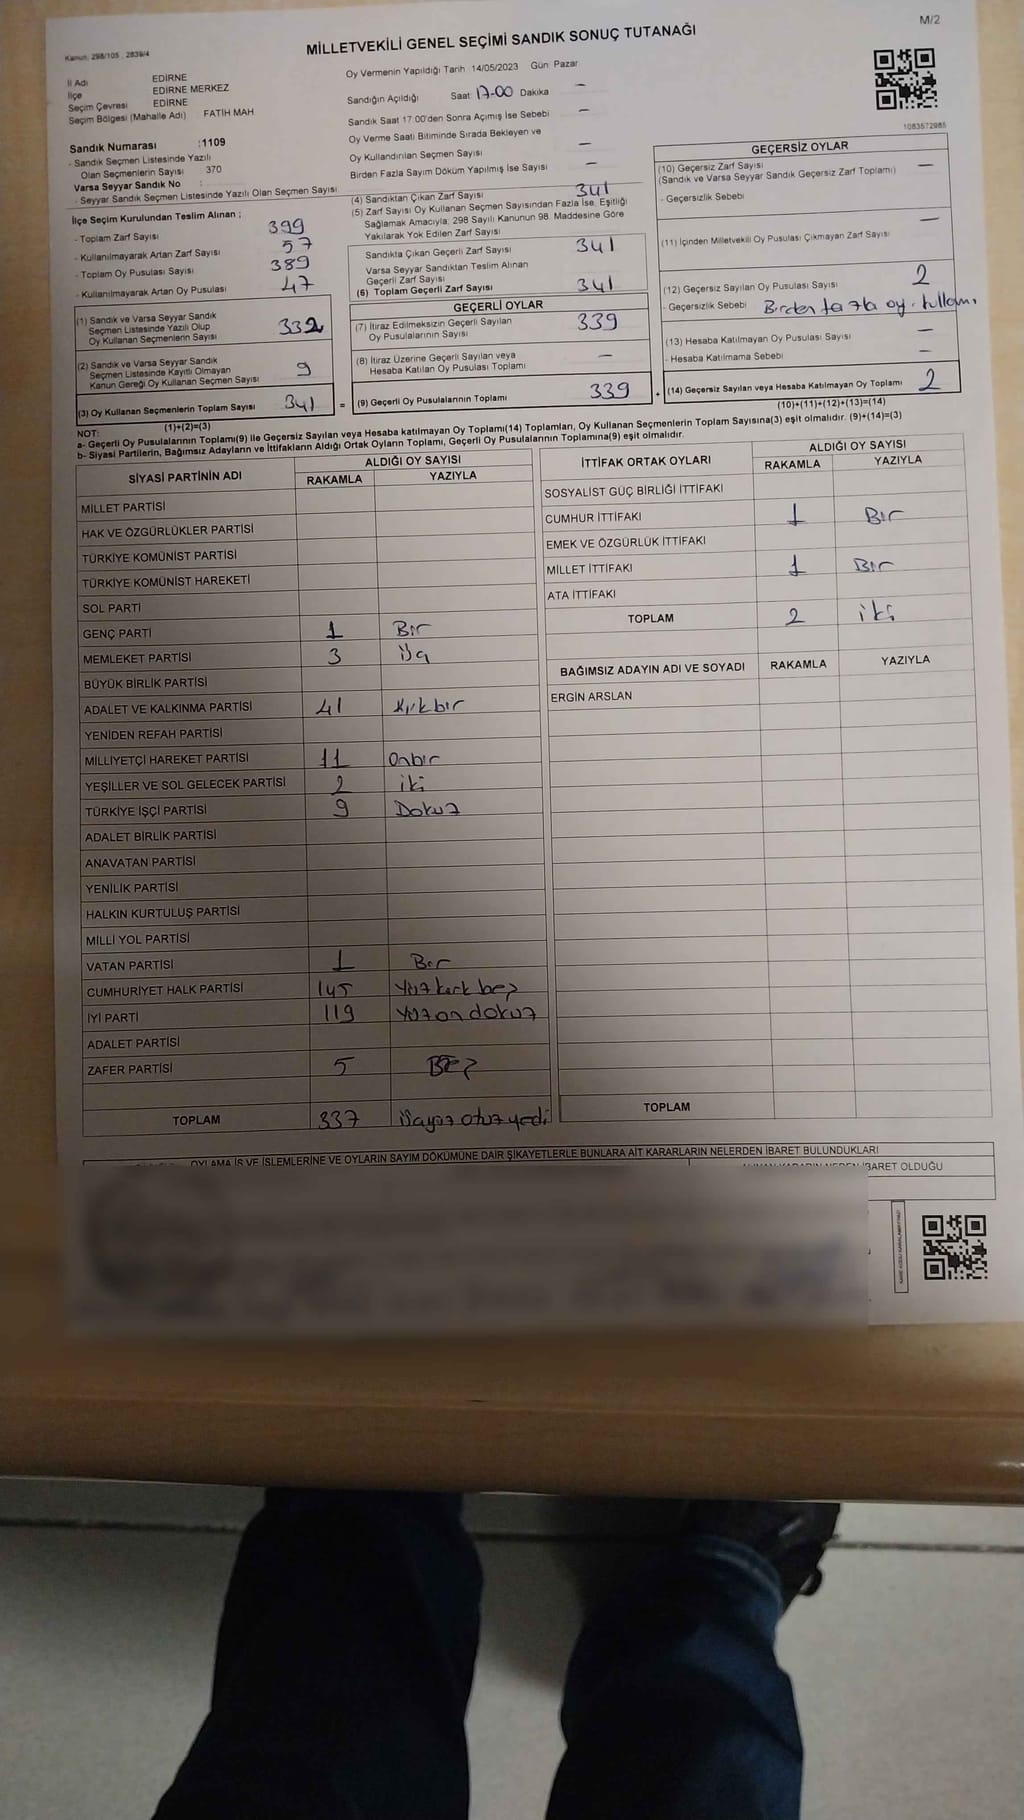 M/2
Kanun: 298/105 , 2839/4
MİLLETVEKİLİ GENEL SEÇİMİ SANDIK SONUÇ TUTANAĞI
İl Adı EDİRNE
İlçe EDİRNE MERKEZ
Seçim Çevresi EDİRNE
Seçim Bölgesi (Mahalle Adı) FATİH MAH
Sandık Numarası :1109
- Sandık Seçmen Listesinde Yazılı
Olan Seçmenlerin Sayısı : 370
Varsa Seyyar Sandık No :
- Seyyar Sandık Seçmen Listesinde Yazılı Olan Seçmen Sayısı
İlçe Seçim Kurulundan Teslim Alınan ;
- Toplam Zarf Sayısı 399
- Kullanılmayarak Artan Zarf Sayısı 57
- Toplam Oy Pusulası Sayısı 389
- Kullanılmayarak Artan Oy Pusulası 47
(1) Sandık ve Varsa Seyyar Sandık
Seçmen Listesinde Yazılı Olup
Oy Kullanan Seçmenlerin Sayısı 332
(2) Sandık ve Varsa Seyyar Sandık
Seçmen Listesinde Kayıtlı Olmayan
Kanun Gereği Oy Kullanan Seçmen Sayısı 9
(3) Oy Kullanan Seçmenlerin Toplam Sayısı 341
(1)+(2)=(3)
Oy Vermenin Yapıldığı Tarih 14/05/2023 Gün: Pazar
Sandığın Açıldığı Saat: 17-00 Dakika —
Sandık Saat 17:00'den Sonra Açımış İse Sebebi —
Oy Verme Saati Bitiminde Sırada Bekleyen ve
Oy Kullandırılan Seçmen Sayısı —
Birden Fazla Sayım Döküm Yapılmış İse Sayısı —
(4) Sandıktan Çıkan Zarf Sayısı 341
(5) Zarf Sayısı Oy Kullanan Seçmen Sayısından Fazla İse, Eşitliği
Sağlamak Amacıyla; 298 Sayılı Kanunun 98. Maddesine Göre
Yakılarak Yok Edilen Zarf Sayısı
Sandıkta Çıkan Geçerli Zarf Sayısı 341
Varsa Seyyar Sandıktan Teslim Alınan
Geçerli Zarf Sayısı
(6) Toplam Geçerli Zarf Sayısı 341
GEÇERLİ OYLAR
(7) İtiraz Edilmeksizin Geçerli Sayılan
Oy Pusulasının Sayısı 339
(8) İtiraz Üzerine Geçerli Sayılan veya
Hesaba Katılan Oy Pusulası Toplamı —
= (9) Geçerli Oy Pusulalarının Toplamı 339
1083572985
GEÇERSİZ OYLAR
(10) Geçersiz Zarf Sayısı —
(Sandık ve Varsa Seyyar Sandık Geçersiz Zarf Toplamı)
- Geçersizlik Sebebi
(11) İçinden Milletvekili Oy Pusulası Çıkmayan Zarf Sayısı —
(12) Geçersiz Sayılan Oy Pusulası Sayısı 2
- Geçersizlik Sebebi Birden fazla oy kullanı
(13) Hesaba Katılmayan Oy Pusulası Sayısı —
- Hesaba Katılmama Sebebi —
+ (14) Geçersiz Sayılan veya Hesaba Katılmayan Oy Toplamı 2
(10)+(11)+(12)+(13)=(14)
NOT:
a- Geçerli Oy Pusulalarının Toplamı(9) ile Geçersiz Sayılan veya Hesaba katılmayan Oy Toplamı(14) Toplamları, Oy Kullanan Seçmenlerin Toplam Sayısına(3) eşit olmalıdır. (9)+(14)=(3)
b- Siyasi Partilerin, Bağımsız Adayların ve İttifakların Aldığı Ortak Oyların Toplamı, Geçerli Oy Pusulalarının Toplamına(9) eşit olmalıdır.
SİYASİ PARTİNİN ADI ALDIĞI OY SAYISI
RAKAMLA YAZIYLA
MİLLET PARTİSİ
HAK VE ÖZGÜRLÜKLER PARTİSİ
TÜRKİYE KOMÜNİST PARTİSİ
TÜRKİYE KOMÜNİST HAREKETİ
SOL PARTİ
GENÇ PARTİ 1 Bir
MEMLEKET PARTİSİ 3 Üç
BÜYÜK BİRLİK PARTİSİ
ADALET VE KALKINMA PARTİSİ 41 Kırkbir
YENİDEN REFAH PARTİSİ
MİLLİYETÇİ HAREKET PARTİSİ 11 Onbir
YEŞİLLER VE SOL GELECEK PARTİSİ 2 iki
TÜRKİYE İŞÇİ PARTİSİ 9 Dokuz
ADALET BİRLİK PARTİSİ
ANAVATAN PARTİSİ
YENİLİK PARTİSİ
HALKIN KURTULUŞ PARTİSİ
MİLLİ YOL PARTİSİ
VATAN PARTİSİ 1 Bir
CUMHURİYET HALK PARTİSİ 145 Yüzkırk beş
İYİ PARTİ 119 Yüzon dokuz
ADALET PARTİSİ
ZAFER PARTİSİ 5 BEŞ
TOPLAM 337 Üçyüz otuz yedi
İTTİFAK ORTAK OYLARI ALDIĞI OY SAYISI
RAKAMLA YAZIYLA
SOSYALİST GÜÇ BİRLİĞİ İTTİFAKI
CUMHUR İTTİFAKI 1 Bir
EMEK VE ÖZGÜRLÜK İTTİFAKI
MİLLET İTTİFAKI 1 Bir
ATA İTTİFAKI
TOPLAM 2 iki
BAĞIMSIZ ADAYIN ADI VE SOYADI RAKAMLA YAZIYLA
ERGİN ARSLAN
TOPLAM
OYLAMA İŞ VE İŞLEMLERİNE VE OYLARIN SAYIM DÖKÜMÜNE DAİR ŞİKAYETLERLE BUNLARA AİT KARARLARIN NELERDEN İBARET BULUNDUKLARI
İBARET OLDUĞU